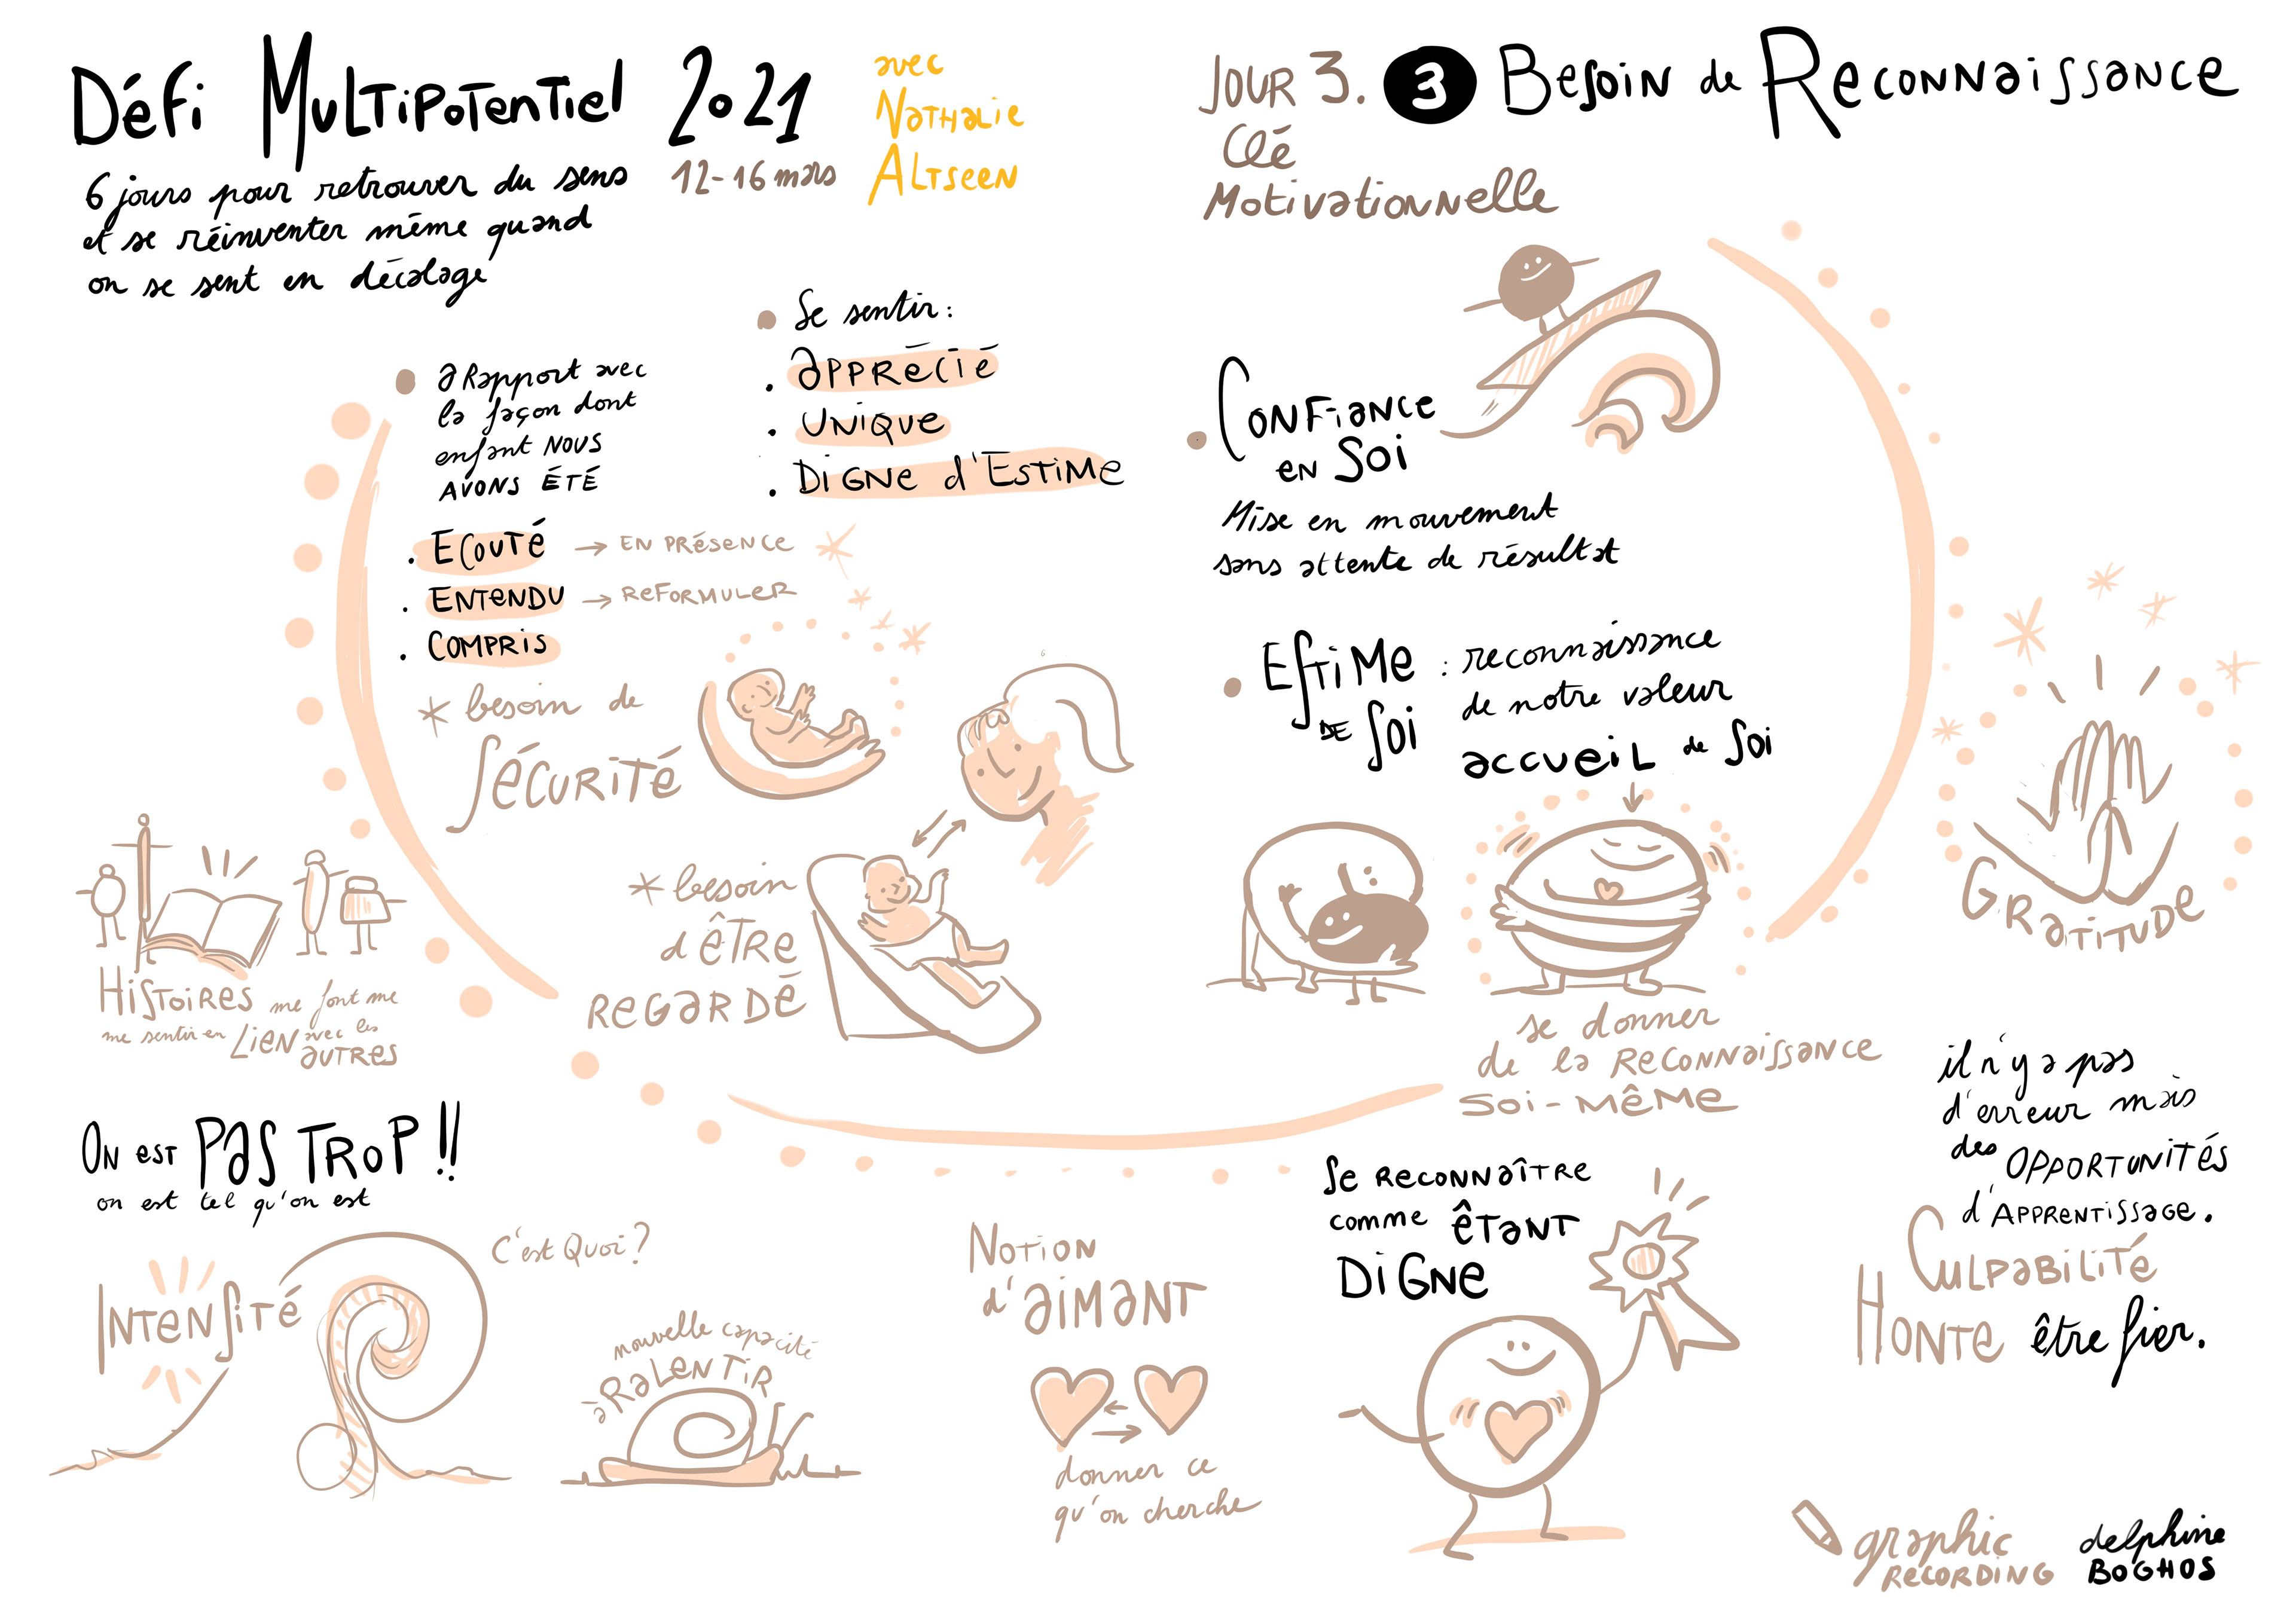 Défi Multipotentiel 2021
6 jours pour retrouver du sens
et se réinventer même quand
on se sent en décalage
12-16 mars
avec
Nathalie
Altseen
Jour 3.
Clé
Motivationnelle
3 Besoin de Reconnaissance
a Rapport avec
la façon dont
enfant NOUS
AVONS ÉTÉ
. Ecouté → EN PRÉSENCE
. ENTENDU → REFORMULER
. COMPRIS
* besoin de
SÉCURITÉ
Se sentir :
. APPRÉCIÉ
. UNIQUE
. DIGNE d'ESTIME
* besoin
d'ÊTRE
REGARDÉ
Confiance
en Soi
Mise en mouvement
sans attente de résultat
Estime
de Soi
: reconnaissance
de notre valeur
accueil de Soi
se donner
de la Reconnaissance
Soi-même
Gratitude
Histoires me font me
me sentir en Lien avec les
autres
On est PAS TROP !!
on est tel qu'on est
Intensité
C'est Quoi ?
nouvelle capacité
à Ralentir
Notion
d'aimant
donner ce
qu'on cherche
Se reconnaître
comme étant
Digne
il n'y a pas
d'erreur mais
des OPPORTUNITÉS
d'APPRENTISSAGE.
Culpabilité
Honte être fier.
graphic
RECORDING
delphine
BOGHOS